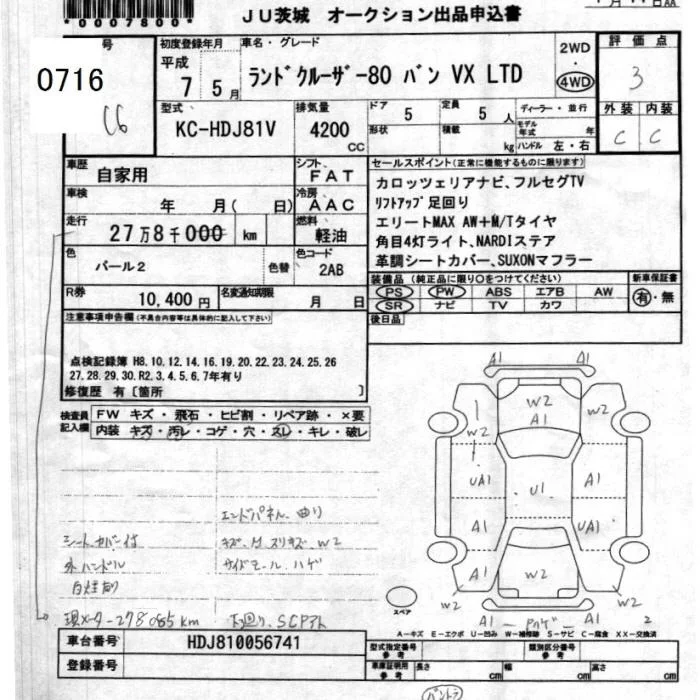 *0007800*
JU茨城 オークション出品申込書
0716
号
C6
初度登録年月
平成
7 5月
車名・グレード
ランドクルーザー80 バン VX LTD
2WD
・
4WD
評価点
3
外装 内装
C C
型式
KC-HDJ81V
排気量
4200
CC
ドア 5
形状
定員 5 人
積載 kg
ディーラー・並行
モデル年式 年
ハンドル 左・右
車歴
自家用
シフト
FAT
車検
年 月( 日)
冷房
AAC
走行
27万8千000 km
燃料
軽油
色
パール2
色替
色コード
2AB
R券
10,400円
名変通知期限
月 日
セールスポイント(正常に機能するものに限ります)
カロッツェリアナビ、フルセグTV
リフトアップ足回り
エリートMAX AW+M/Tタイヤ
角目4灯ライト、NARDIステア
革調シートカバー、SUXONマフラー
装備品(純正品に限り○をつけてください)
PS PW ABS エアB AW
SR ナビ TV カワ
新車保証書
有・無
後日品
注意事項申告欄(不具合内容等は具体的に記入して下さい)
点検記録簿 H8,10,12,14,16,19,20,22,23,24,25,26
27,28,29,30,R2,3,4,5,6,7年有り
修復歴 有[箇所 ]
検査員記入欄
FW キズ・飛石・ヒビ割・リペア跡・×要
内装 キズ・汚レ・コゲ・穴・スレ・キレ・破レ
エンドパネル曲り
シートカバー付
キズ、凹、スリキズ W2
外ハンドル
サイドモール、ハゲ
現メーター278085km
下回り、SCアト
A1 A1
W2
A1
W2 W2
UA1 U1 A1
A1 UA1
A1 W2 A1
A1 A1
スペア
2
A-キズ E-エクボ U-凹み W-補修跡 S-サビ C-腐食 XX-交換済
車台番号
HDJ810056741
登録番号
型式指定番号
参考
類別区分番号
参考
車庫証明用
参考
長さ cm
幅 cm
高さ cm